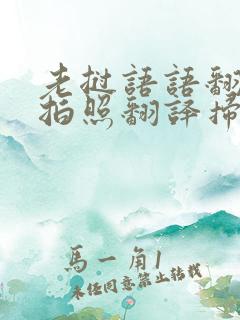 老挝語語翻
拍照翻譯掃
馬一角1
未经同意禁止转载